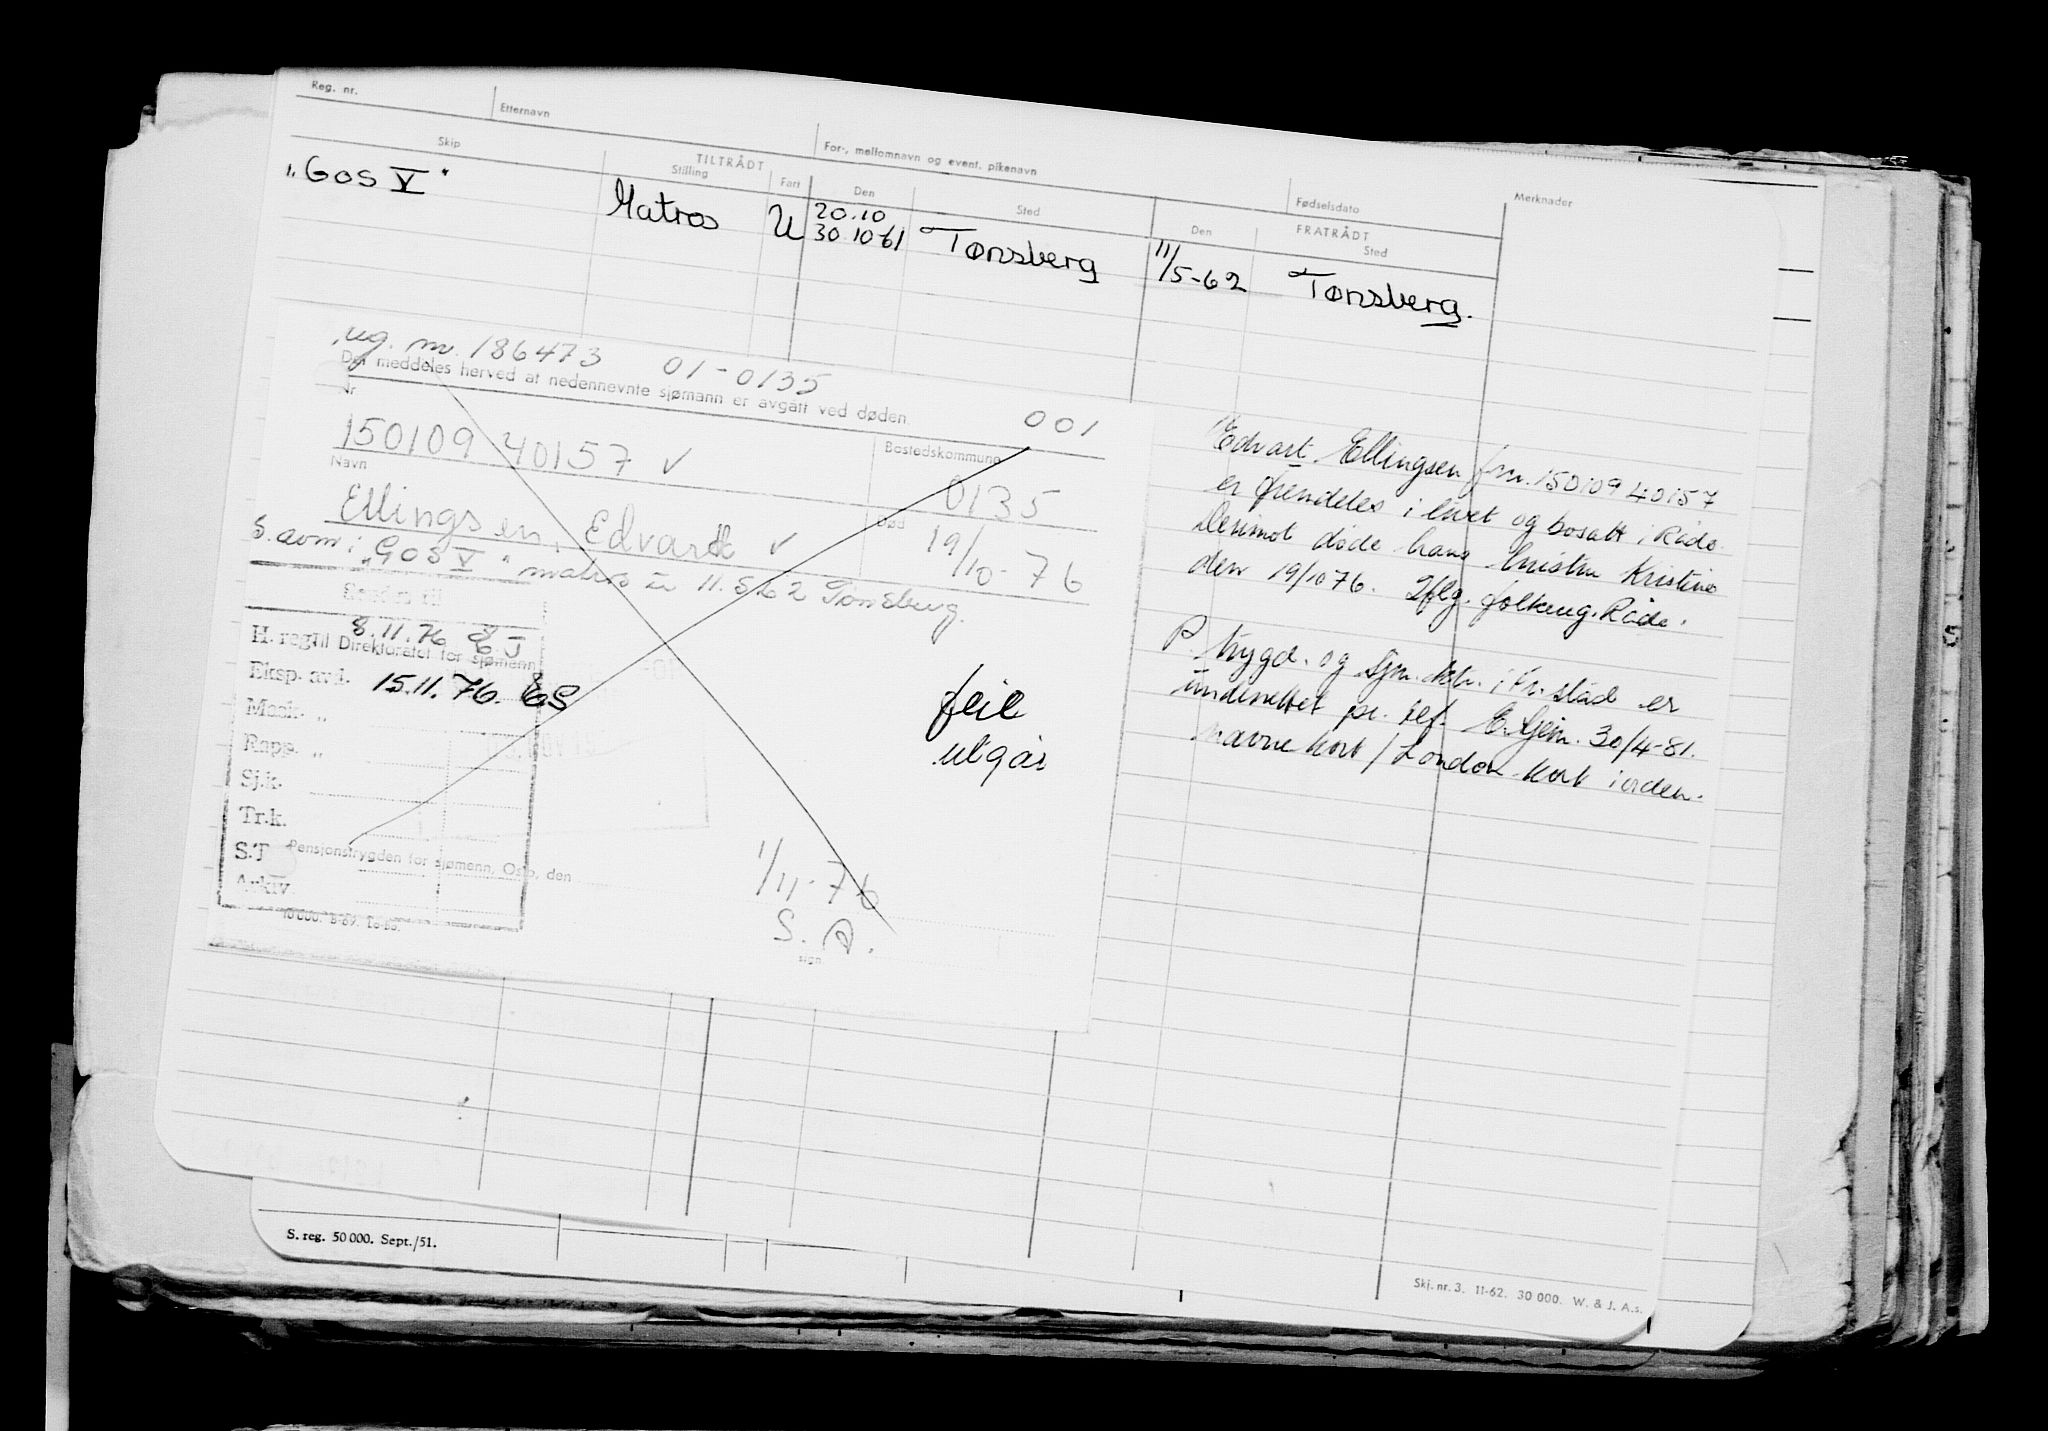 Reg. nr.
Etternavn
For-, mellomnavn og event. pikenavn
Fødselsdato
Merknader
Skip
TILTRÅDT
FRATRÅDT
Stilling Fart Den Sted Den Sted
"GOS V" Matros U 20.10 30.10 61 Tønsberg 11/5-62 Tønsberg.
reg. nr. 186473 01-0135
Det meddeles herved at nedennevnte sjømann er avgått ved døden
001
Nr
Bostedskommune
150109 40157 ✓
0135
Navn
Død
Ellingsen, Edvardt ✓
19/10-76
S. avm: "GOS V" matros u 11.5.62 Tønsberg.
Sendes til
8.11.76 EJ
H. reg
Til Direktoratet for sjømenn
Eksp. avd. 15.11.76. ES
Mask. „
Rapp. „
Sj.k.
Tr.k.
S.T
Arkiv.
Pensjonstrygden for sjømenn, Oslo, den
1/11-76
S. P.
sign.
10 000. 8-69. Lo-bo.
feil
utgår
Edvart Ellingsen fnr. 150109 40157
er fremdeles i livet og bosatt i Råde.
Derimot døde hans hustru Kristine
den 19/10 76. Iflg. folkereg. Råde.
P. trygd. og Sjm. ktr. i Fr.stad er
underrettet pr. tlf. 30/4-81.
Navne kort / London-kort i orden.
S. reg. 50 000. Sept./51.
Skj. nr. 3. 11-62. 30 000. W. & J. A.s.